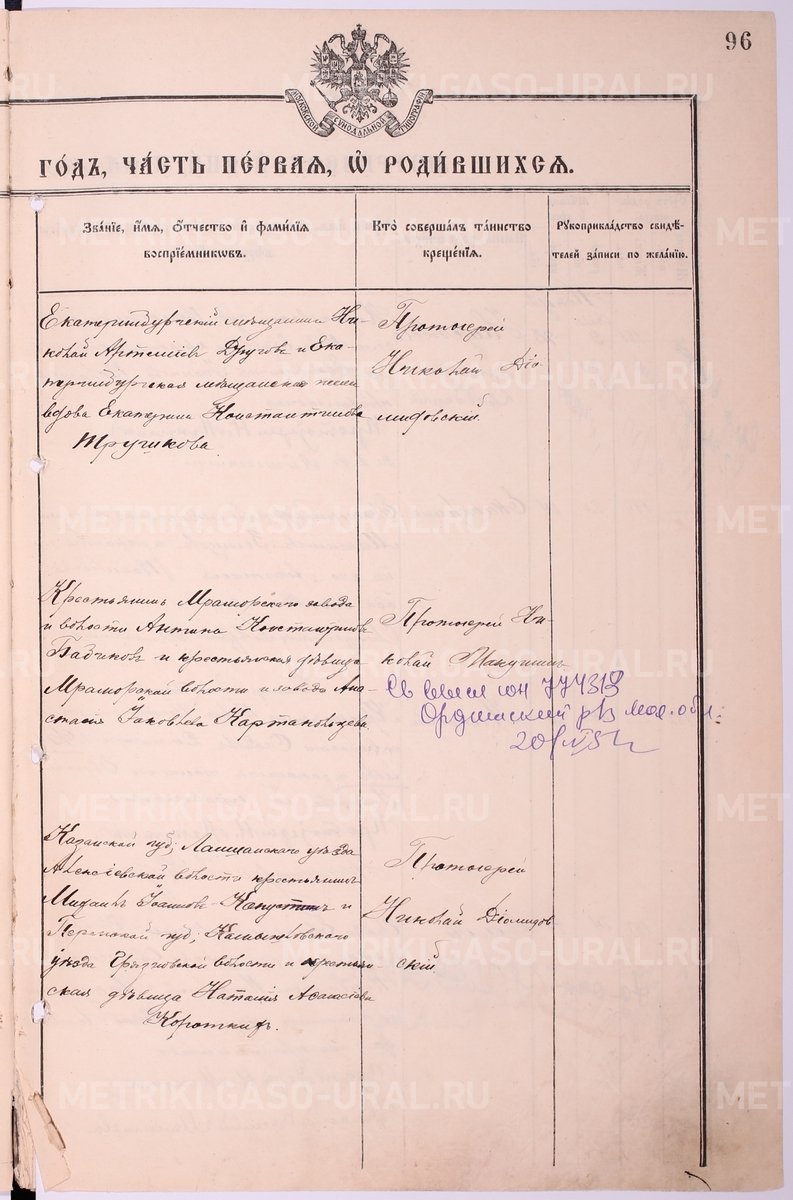 96
МОСКОВСКОЙ СѴНОДАЛЬНОЙ ТИПОГРАФІИ
ГО́ДЪ, ЧА́СТЬ ПЕ́РВАЯ, Ѽ РОДИ́ВШИХСЯ.
Зва́нїе, и́мя, ѻ́тчество и҆ фами́лїя
воспрїе́мникѡвъ.
Кто̀ соверша́лъ та́инство
креще́нїя.
Рꙋкоприкла́дство свидѣ́-
телей за́писи по жела́нїю.
Екатеринбургскій мѣщанинъ Ни-
колай Артеміевъ Друговъ и Ека-
теринбургская мѣщанская
вдова Екатерина Константинова
Трушкова.
Протоіерей
Николай Діо-
мидовскій
Крестьянинъ Мраморскаго завода
и волости Антипа Константиновъ
Бабиковъ и крестьянская дѣвица
Мраморской волости и завода Ана-
стасія Іаковлева Картаковцева
Протоіерей Ни-
колай
Св
ЮН 774313
20
Казанской губ; Лаишевскаго уѣзда
Алексѣевской волости крестьянинъ
Михаилъ Іоанновъ Капустинъ и
Пермской губ; Камышловскаго
уѣзда Грязновской волости и крестьян-
ская дѣвица Наталія Афанасіева
Короткихъ.
Протоіерей
Николай Діомидов-
скій
METRIKI.GASO-URAL.RU